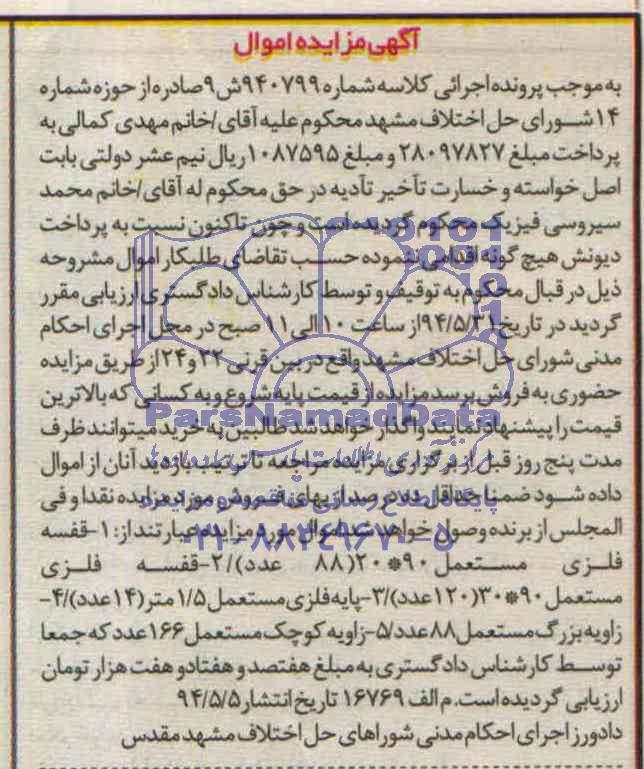 آگهی مزایده اموال
به موجب پرونده اجرائی کلاسه شماره ۹۴۰۷۹۹ش۹صادره از حوزه شماره
۱۴شورای حل اختلاف مشهد محکوم علیه آقای/خانم مهدی کمالی به
پرداخت مبلغ ۲۸۰۹۷۸۲۷ و مبلغ ۱۰۸۷۵۹۵ریال نیم عشر دولتی بابت
اصل خواسته و خسارت تأخیر تأدیه در حق محکوم له آقای/خانم محمد
سیروسی فیزیک محکوم گردیده است و چون تاکنون نسبت به پرداخت
دیونش هیچ گونه اقدامی ننموده حسب تقاضای طلبکار اموال مشروحه
ذیل در قبال محکوم به توقیف و توسط کارشناس دادگستری ارزیابی مقرر
گردید در تاریخ۹۴/۵/۳۱از ساعت ۱۰الی۱۱ صبح در محل اجرای احکام
مدنی شورای حل اختلاف مشهد واقع در بین قرنی ۲۲ و۲۴از طریق مزایده
حضوری به فروش برسد مزایده از قیمت پایه شروع و به کسانی که بالاترین
قیمت را پیشنهاد نمایند واگذار خواهد شد طالبین به خرید میتوانند ظرف
ParsNamadData
مدت پنج روز قبل از برگزاری مزایده مراجعه تا ترتیب بازدید آنان از اموال
داده شود ضمنا حداقل ده درصد از بهای فروش مورد مزایده نقدا و فی
پایگاه اطلاع رسانی مناقصه و مزایده
المجلس از برنده وصول خواهد شد اموال مورد مزایده عبارتند از: ۱-قفسه
۰۲۱-۸۸۳۴۹۶۷۰-۵
فلزی مستعمل ۹۰*۲۰(۸۸ عدد)/۲-قفسه فلزی
مستعمل ۹۰*۳۰(۱۲۰عدد)/۳-پایه فلزی مستعمل ۱/۵ متر(۱۴عدد)/۴-
زاویه بزرگ مستعمل۸۸عدد/۵-زاویه کوچک مستعمل ۱۶۶عدد که جمعا
توسط کارشناس دادگستری به مبلغ هفتصد و هفتاد و هفت هزار تومان
ارزیابی گردیده است. م الف ۱۶۷۶۹ تاریخ انتشار ۹۴/۵/۵
دادورز اجرای احکام مدنی شوراهای حل اختلاف مشهد مقدس